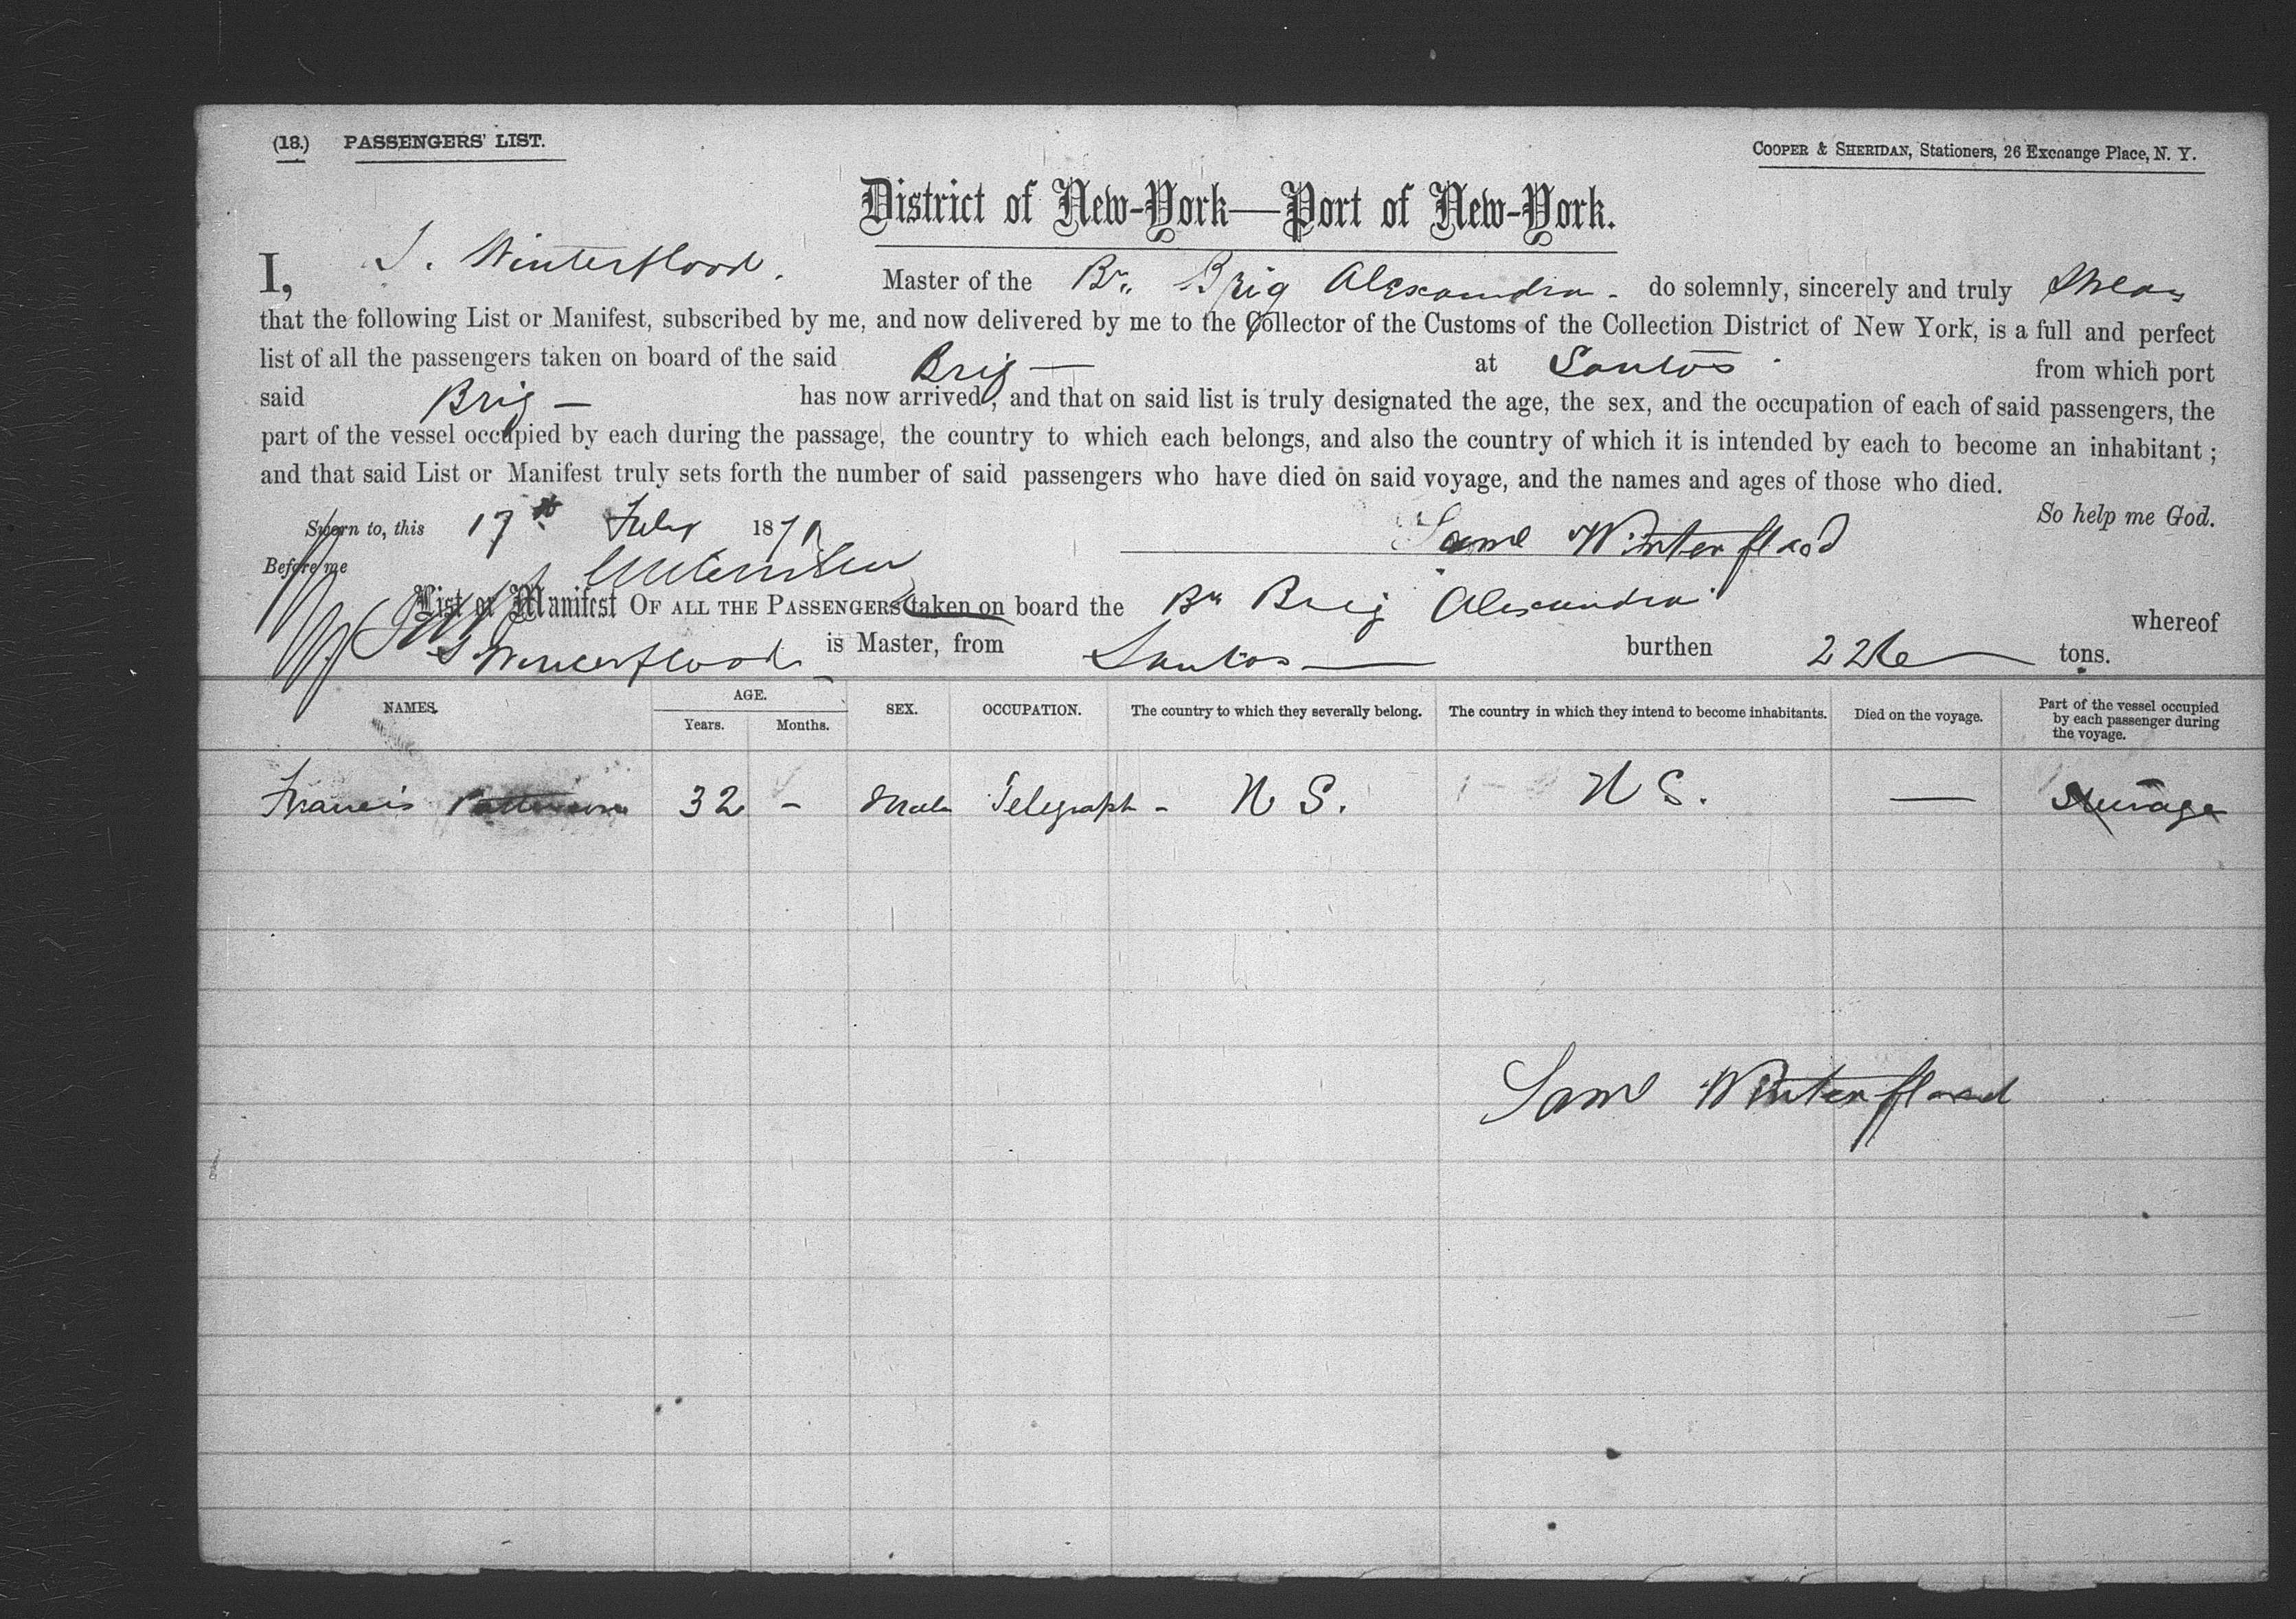 (18.) PASSENGERS' LIST.
COOPER & SHERIDAN, Stationers, 26 Exchange Place, N. Y.
District of New-York—Port of New-York.
I, S. Winterflood. Master of the Br. Brig Alexandra - do solemnly, sincerely and truly Swear
that the following List or Manifest, subscribed by me, and now delivered by me to the Collector of the Customs of the Collection District of New York, is a full and perfect
list of all the passengers taken on board of the said Brig — at Santos from which port
said Brig — has now arrived, and that on said list is truly designated the age, the sex, and the occupation of each of said passengers, the
part of the vessel occupied by each during the passage, the country to which each belongs, and also the country of which it is intended by each to become an inhabitant;
and that said List or Manifest truly sets forth the number of said passengers who have died on said voyage, and the names and ages of those who died.
So help me God.
Sworn to, this 17th July 187
Saml Winterflood
Before me
List or Manifest OF ALL THE PASSENGERS taken on board the Br Brig Alexandra whereof
S. Winterflood is Master, from Santos — burthen 226 — tons.
NAMES. AGE. Years. Months. SEX. OCCUPATION. The country to which they severally belong. The country in which they intend to become inhabitants. Died on the voyage. Part of the vessel occupied by each passenger during the voyage.
Francis Patterson 32 - Male Telegraph - U S. U S. — Steerage
Saml Winterflood